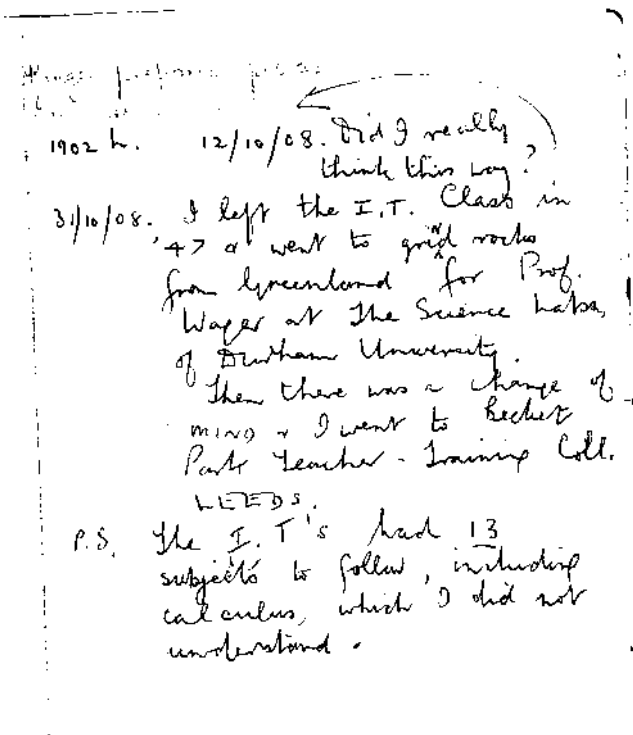 1902 h. 12/10/08. Did I really
think this way?
31/10/08. I left the I.T. Class in
'47 & went to grind rocks
from Greenland for Prof.
Wager at The Science Labs,
of Durham University.
Then there was a change of
MIND & I went to Becket
Park Teacher-Training Coll.
LEEDS.
P.S. The I.T's had 13
subjects to follow, including
calculus, which I did not
understand.